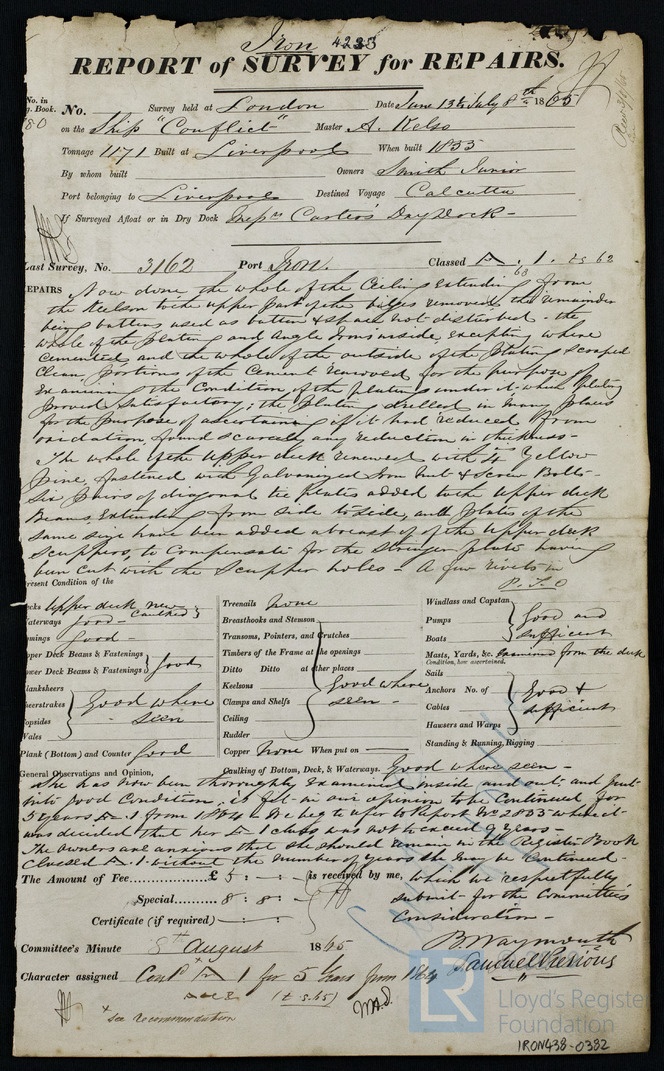 Iron 4235
REPORT of SURVEY for REPAIRS.
No. in
Book.
80
No. Survey held at London Date June 13th July 8th 1865
on the Ship "Conflict" Master A. Kelso
Tonnage 1171 Built at Liverpool When built 1855
By whom built Owners Smith Junior
Port belonging to Liverpool Destined Voyage Calcutta
If Surveyed Afloat or in Dry Dock Carter's Dry Dock -
Last Survey, No. 3162 Port Iron. Classed A. 1. 62
63
REPAIRS Now done the whole of the Ceiling extending from
the Keelson to the upper part of the bilges removed, the remainder
being battens used as batten & spar not disturbed - the
whole of the plating and Angle Irons inside, excepting where
cemented and the whole of the outside of the plating scraped
clean, portions of the Cement removed for the purpose of
Examining the Condition of the plating under it which plating
proved satisfactory; the plating drilled in many places
for the purpose of ascertaining if it had reduced from
oxidation, found scarcely any reduction in thickness -
The whole of the upper deck renewed with Yellow
Pine, fastened with Galvanized Iron Nut & Screw Bolts -
Six pairs of diagonal tie plates added to the upper deck
Beams, Extending from side to side, and plates of the
same size have been added abreast of the Upper deck
Scuppers, to Compensate for the stringer plate having
been cut with the Scupper holes - A few rivets in
P.T.O
Present Condition of the
Decks Upper deck new Caulked
Waterways good -
Comings Good -
Upper Deck Beams & Fastenings
Lower Deck Beams & Fastenings good
Planksheers
Sheerstrakes
Topsides
Wales
Good where seen
Plank (Bottom) and Counter Good
Treenails None
Breasthooks and Stemson
Transoms, Pointers, and Crutches
Timbers of the Frame at the openings
Ditto Ditto at other places
Keelsons
Clamps and Shelfs
Ceiling
Rudder
Good where seen -
Copper None When put on
Caulking of Bottom, Deck, & Waterways. Good where seen -
Windlass and Capstan
Pumps
Boats
Good and sufficient
Masts, Yards, &c. Examined from the deck
Condition, how ascertained.
Sails
Anchors No. of
Cables
Hawsers and Warps
Standing & Running, Rigging
Good & sufficient
General Observations and Opinion,
She has now been thoroughly Examined inside and out, and put
into good Condition, is fit in our opinion to be Continued for
5 years A 1 from 1864 - We beg to refer to Report No 2833 where it
was decided that her A 1 class was not to exceed 9 years -
The owners are anxious that she should remain in the Register Book
classed A. 1. without the number of years she may be Continued -
The Amount of Fee £ 5 : - : - is received by me, which we respectfully
submit for the Committee's
Consideration -
Special 8 : 8 : -
Certificate (if required) - : - : -
B. Waymouth
Samuel Previous
Committee's Minute 8th August 1865
Character assigned Cont A 1 for 5 Years from 1864
see recommendation
Lloyd's Register
Foundation
LR
IRON438-0382